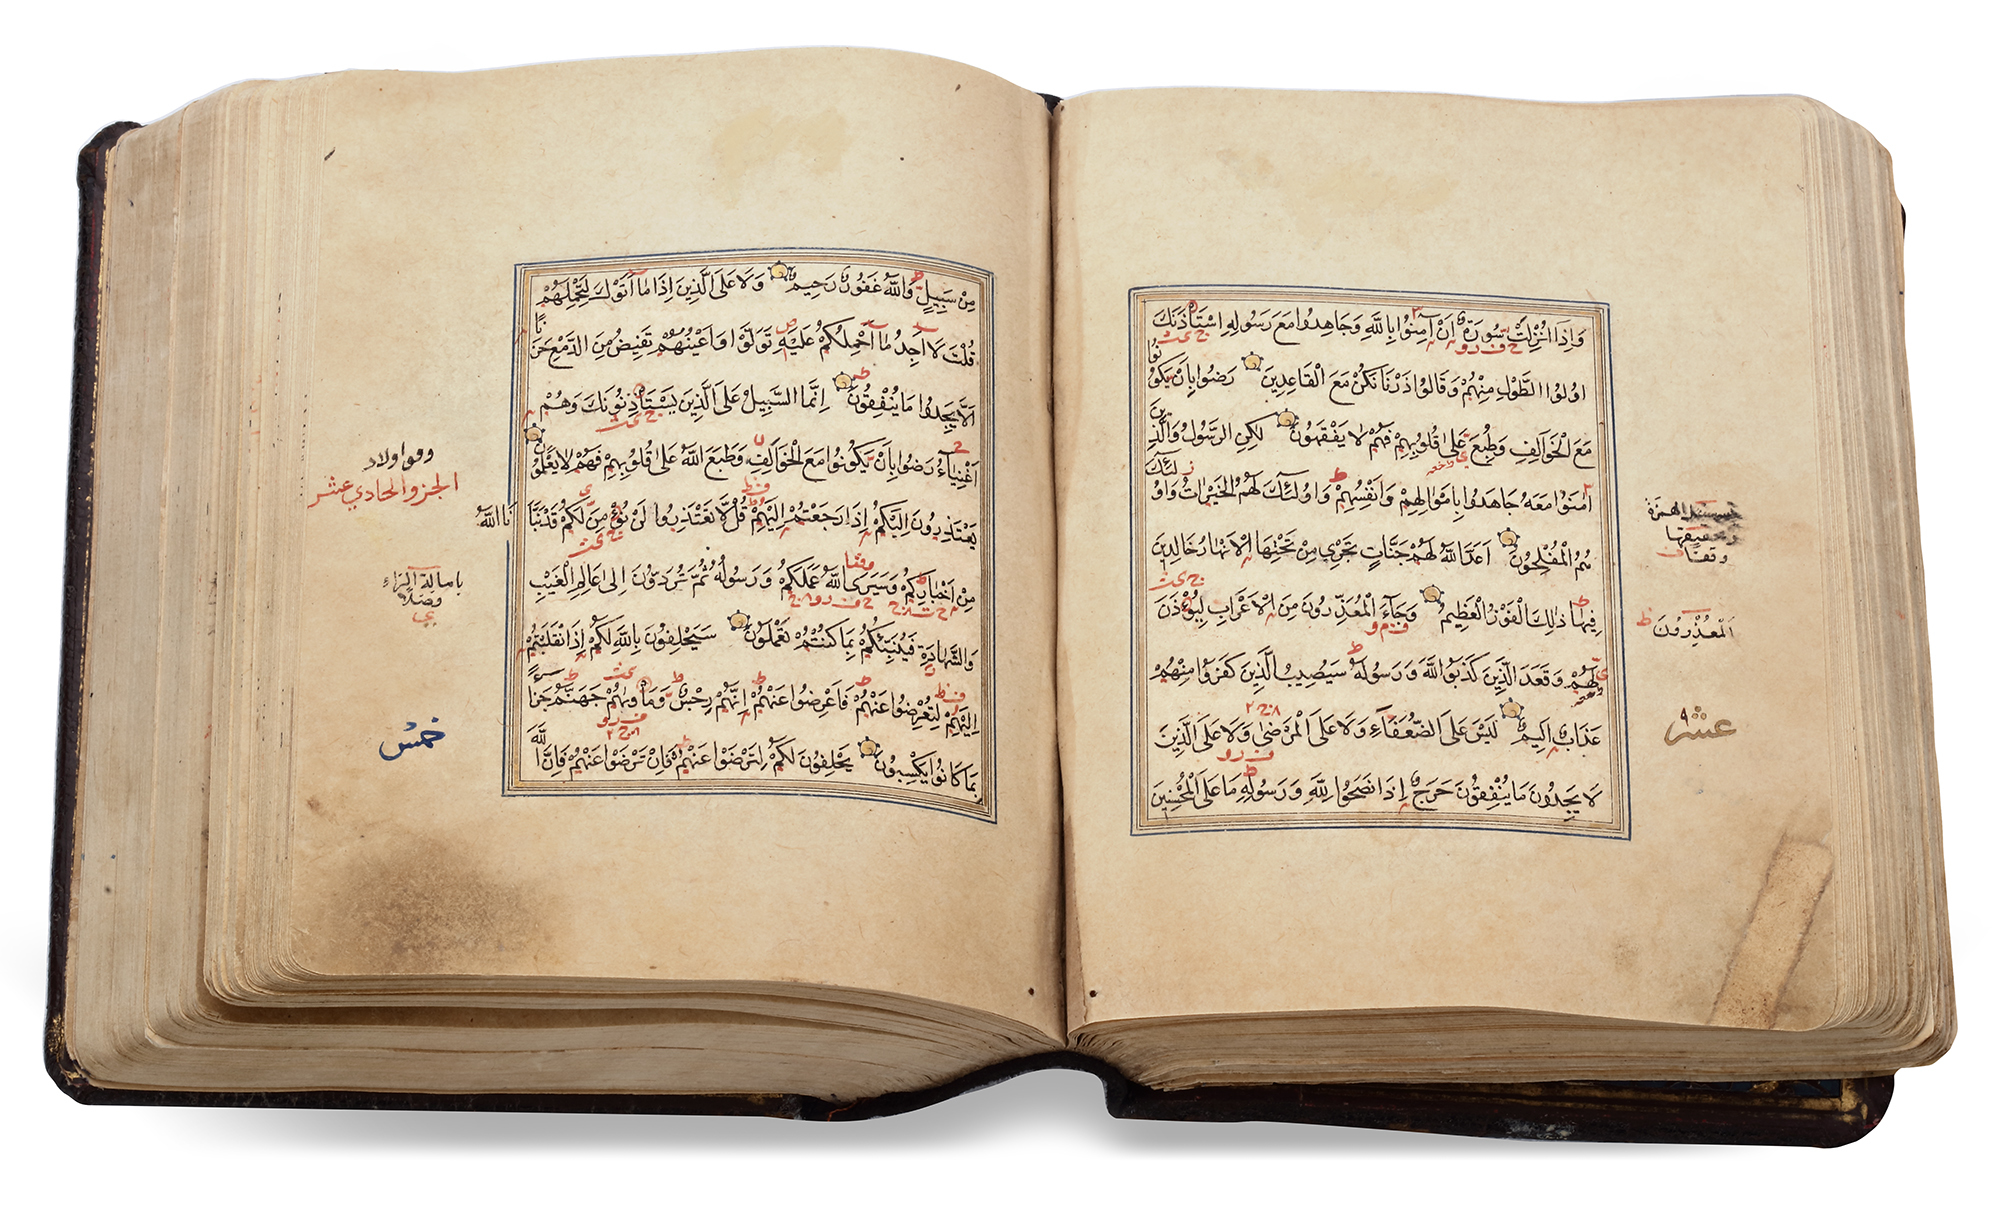 وَإِذَا أُنْزِلَتْ سُورَةٌ أَنْ آمِنُوا بِاللَّهِ وَجَاهِدُوا مَعَ رَسُولِهِ اسْتَأْذَنَكَ
أُولُوا الطَّوْلِ مِنْهُمْ وَقَالُوا ذَرْنَا نَكُنْ مَعَ الْقَاعِدِينَ رَضُوا بِأَنْ يَكُونُوا
مَعَ الْخَوَالِفِ وَطُبِعَ عَلَى قُلُوبِهِمْ فَهُمْ لَا يَفْقَهُونَ لَكِنِ الرَّسُولُ وَالَّذِينَ
آمَنُوا مَعَهُ جَاهَدُوا بِأَمْوَالِهِمْ وَأَنْفُسِهِمْ وَأُولَئِكَ لَهُمُ الْخَيْرَاتُ وَأُولَئِكَ
هُمُ الْمُفْلِحُونَ أَعَدَّ اللَّهُ لَهُمْ جَنَّاتٍ تَجْرِي مِنْ تَحْتِهَا الْأَنْهَارُ خَالِدِينَ
فِيهَا ذَلِكَ الْفَوْزُ الْعَظِيمُ وَجَاءَ الْمُعَذِّرُونَ مِنَ الْأَعْرَابِ لِيُؤْذَنَ
لَهُمْ وَقَعَدَ الَّذِينَ كَذَبُوا اللَّهَ وَرَسُولَهُ سَيُصِيبُ الَّذِينَ كَفَرُوا مِنْهُمْ
عَذَابٌ أَلِيمٌ لَيْسَ عَلَى الضُّعَفَاءِ وَلَا عَلَى الْمَرْضَى وَلَا عَلَى الَّذِينَ
لَا يَجِدُونَ مَا يُنْفِقُونَ حَرَجٌ إِذَا نَصَحُوا لِلَّهِ وَرَسُولِهِ مَا عَلَى الْمُحْسِنِينَ
وتحقيقها
وقفا
الْمُعْذِرُونَ ط
عشر
مِنْ سَبِيلٍ وَاللَّهُ غَفُورٌ رَحِيمٌ وَلَا عَلَى الَّذِينَ إِذَا مَا أَتَوْكَ لِتَحْمِلَهُمْ
قُلْتَ لَا أَجِدُ مَا أَحْمِلُكُمْ عَلَيْهِ تَوَلَّوْا وَأَعْيُنُهُمْ تَفِيضُ مِنَ الدَّمْعِ حَزَنًا
أَلَّا يَجِدُوا مَا يُنْفِقُونَ إِنَّمَا السَّبِيلُ عَلَى الَّذِينَ يَسْتَأْذِنُونَكَ وَهُمْ
أَغْنِيَاءُ رَضُوا بِأَنْ يَكُونُوا مَعَ الْخَوَالِفِ وَطَبَعَ اللَّهُ عَلَى قُلُوبِهِمْ فَهُمْ لَا يَعْلَمُونَ
يَعْتَذِرُونَ إِلَيْكُمْ إِذَا رَجَعْتُمْ إِلَيْهِمْ قُلْ لَا تَعْتَذِرُوا لَنْ نُؤْمِنَ لَكُمْ قَدْ نَبَّأَنَا اللَّهُ
مِنْ أَخْبَارِكُمْ وَسَيَرَى اللَّهُ عَمَلَكُمْ وَرَسُولُهُ ثُمَّ تُرَدُّونَ إِلَى عَالِمِ الْغَيْبِ
وَالشَّهَادَةِ فَيُنَبِّئُكُمْ بِمَا كُنْتُمْ تَعْمَلُونَ سَيَحْلِفُونَ بِاللَّهِ لَكُمْ إِذَا انْقَلَبْتُمْ
إِلَيْهِمْ لِتُعْرِضُوا عَنْهُمْ فَأَعْرِضُوا عَنْهُمْ إِنَّهُمْ رِجْسٌ وَمَأْوَاهُمْ جَهَنَّمُ جَزَاءً
بِمَا كَانُوا يَكْسِبُونَ يَحْلِفُونَ لَكُمْ لِتَرْضَوْا عَنْهُمْ فَإِنْ تَرْضَوْا عَنْهُمْ فَإِنَّ اللَّهَ
الجزو الحادي عشر
بامالة الراء
وصلا
ي
خمس